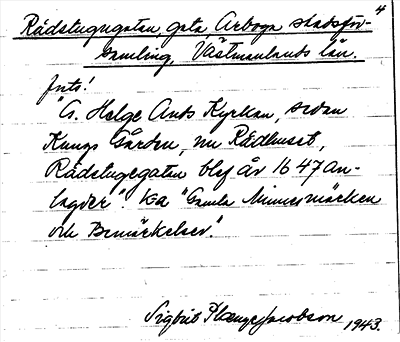 4
Rådstugugatan, gata, Arboga stadsför-
samling, Västmanlands län.
Foto!
"G. Helge Ands Kyrkan, sedan
Kungs Gården, nu Rådhuset,
Rådstugegatan blef år 1647 an-
lagder". "Gamla Minnesmärcken
och Bemärkelser."
Sigbrit Plænge Jacobson 1943.